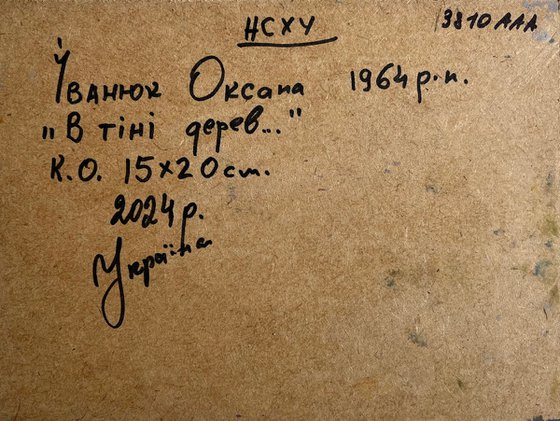 НСХУ
3810ААА
Іванюк Оксана 1964 р.н.
"В тіні дерев..."
К.О. 15х20 cm.
2024 р.
Україна